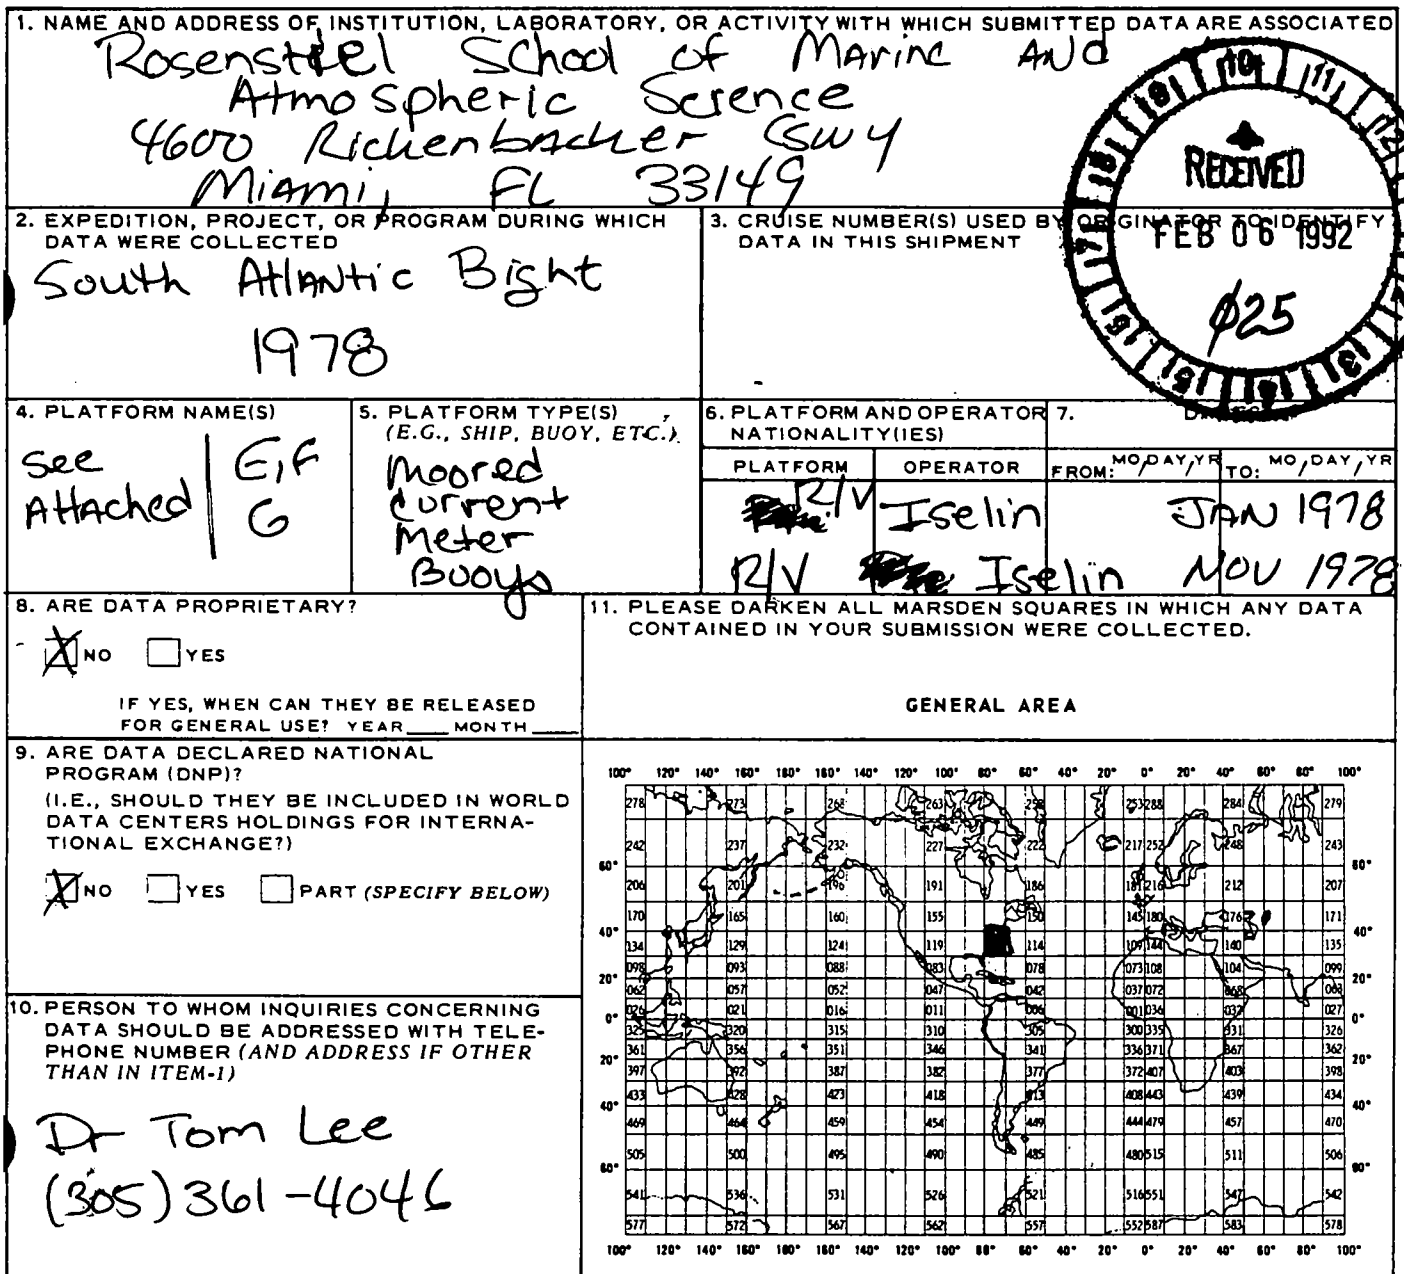 1. NAME AND ADDRESS OF INSTITUTION, LABORATORY, OR ACTIVITY WITH WHICH SUBMITTED DATA ARE ASSOCIATED
Rosenstiel School of Marine AND
Atmospheric Science
4600 Rickenbacker CSWY
Miami, FL 33149
10 11 12 13 15 16 17 18 19
RECEIVED
FEB 06 1992
Ø25
2. EXPEDITION, PROJECT, OR PROGRAM DURING WHICH
DATA WERE COLLECTED
South Atlantic Bight
1978
3. CRUISE NUMBER(S) USED BY ORIGINATOR TO IDENTIFY
DATA IN THIS SHIPMENT
4. PLATFORM NAME(S)
see
Attached
E, F
G
5. PLATFORM TYPE(S)
(E.G., SHIP, BUOY, ETC.)
Moored
current
Meter
Buoys
6. PLATFORM AND OPERATOR
NATIONALITY(IES)
PLATFORM OPERATOR
R/V Iselin
R/V Iselin
7.
FROM: MO/DAY/YR TO: MO/DAY/YR
JAN 1978
NOV 1978
8. ARE DATA PROPRIETARY?
NO YES
IF YES, WHEN CAN THEY BE RELEASED
FOR GENERAL USE? YEAR____ MONTH____
9. ARE DATA DECLARED NATIONAL
PROGRAM (DNP)?
(I.E., SHOULD THEY BE INCLUDED IN WORLD
DATA CENTERS HOLDINGS FOR INTERNA-
TIONAL EXCHANGE?)
NO YES PART (SPECIFY BELOW)
10. PERSON TO WHOM INQUIRIES CONCERNING
DATA SHOULD BE ADDRESSED WITH TELE-
PHONE NUMBER (AND ADDRESS IF OTHER
THAN IN ITEM-1)
Dr Tom Lee
(305) 361-4046
11. PLEASE DARKEN ALL MARSDEN SQUARES IN WHICH ANY DATA
CONTAINED IN YOUR SUBMISSION WERE COLLECTED.
GENERAL AREA
100° 120° 140° 160° 180° 160° 140° 120° 100° 80° 60° 40° 20° 0° 20° 40° 60° 80° 100°
278 273 268 263 258 253 288 284 279
242 237 232 227 222 217 252 248 243
60° 60°
206 201 196 191 186 181 216 212 207
170 165 160 155 150 145 180 176 171
40° 40°
134 129 124 119 114 109 144 140 135
098 093 088 083 078 073 108 104 099
20° 20°
062 057 052 047 042 037 072 068 063
026 021 016 011 006 001 036 032 027
0° 0°
325 320 315 310 305 300 335 331 326
361 356 351 346 341 336 371 367 362
20° 20°
397 392 387 382 377 372 407 403 398
433 428 423 418 413 408 443 439 434
40° 40°
469 464 459 454 449 444 479 457 470
505 500 495 490 485 480 515 511 506
60° 60°
541 536 531 526 521 516 551 547 542
577 572 567 562 557 552 587 583 578
100° 120° 140° 160° 180° 160° 140° 120° 100° 80° 60° 40° 20° 0° 20° 40° 60° 80° 100°